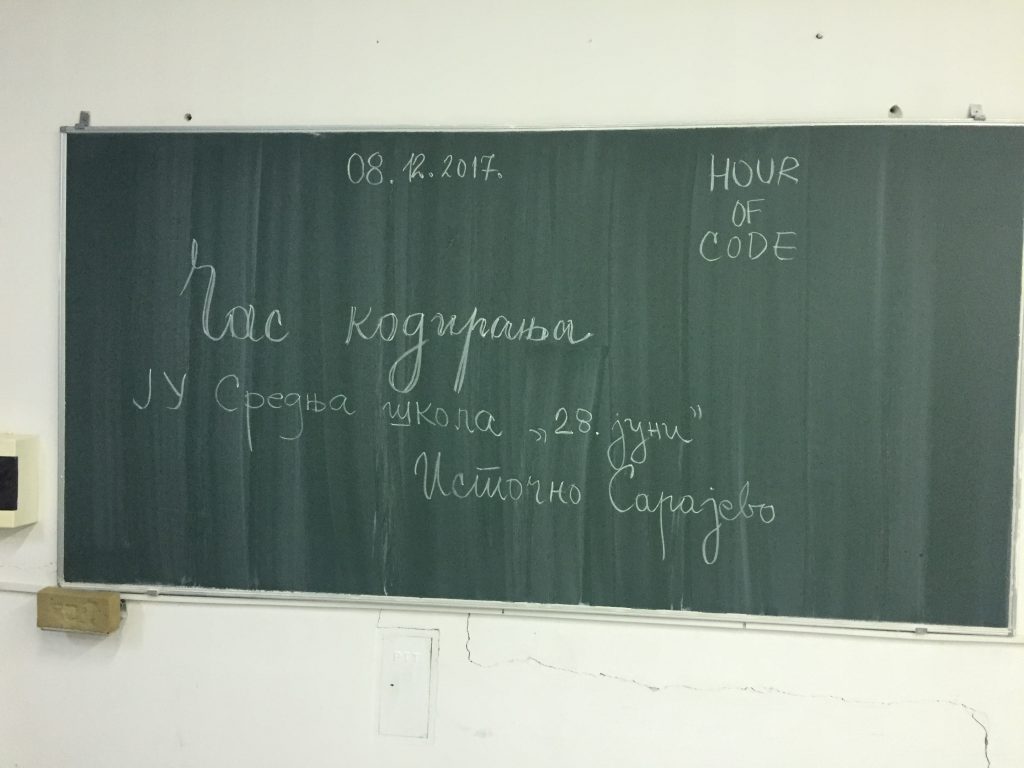 08.12.2017.
HOUR
OF
CODE
Час кодирања
ЈУ Средња школа „28. јуни”
Источно Сарајево